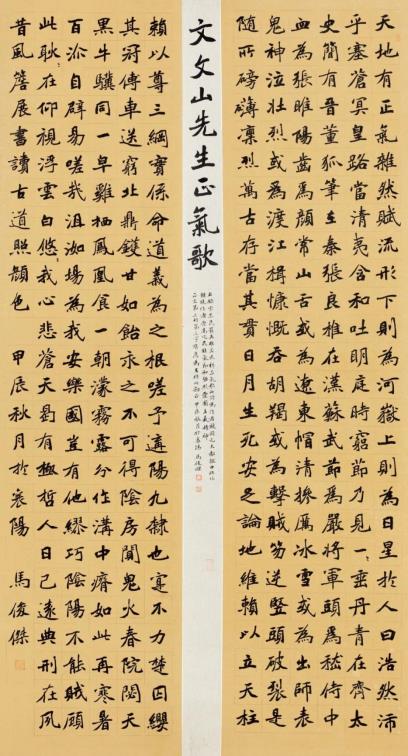 天地有正氣雜然賦流形下則為河嶽上則為日星於人曰浩然沛
乎塞蒼冥皇路當清夷含和吐明庭時窮節乃見一一垂丹青在齊太
史簡在晉董狐筆在秦張良椎在漢蘇武節為嚴將軍頭為嵇侍中
血為張睢陽齒為顏常山舌或為遼東帽清操厲冰雪或為出師表
鬼神泣壯烈或為渡江楫慷慨吞胡羯或為擊賊笏逆豎頭破裂是
隨所磅礴凜烈萬古存當其貫日月生死安足論地維賴以立天柱
文文山先生正氣歌
賴以尊三綱實係命道義為之根嗟予遘陽九隸也實不力楚囚纓
其冠傳車送窮北鼎鑊甘如飴求之不可得陰房闃鬼火春院閟天
黑牛驥同一皂雞棲鳳凰食一朝濛霧露分作溝中瘠如此再寒暑
百沴自辟易嗟哉沮洳場為我安樂國豈有他繆巧陰陽不能賊顧
此耿耿在仰視浮雲白悠悠我心悲蒼天曷有極哲人日已遠典刑在夙
昔風簷展書讀古道照顏色 甲辰秋月於襄陽 馬俊傑